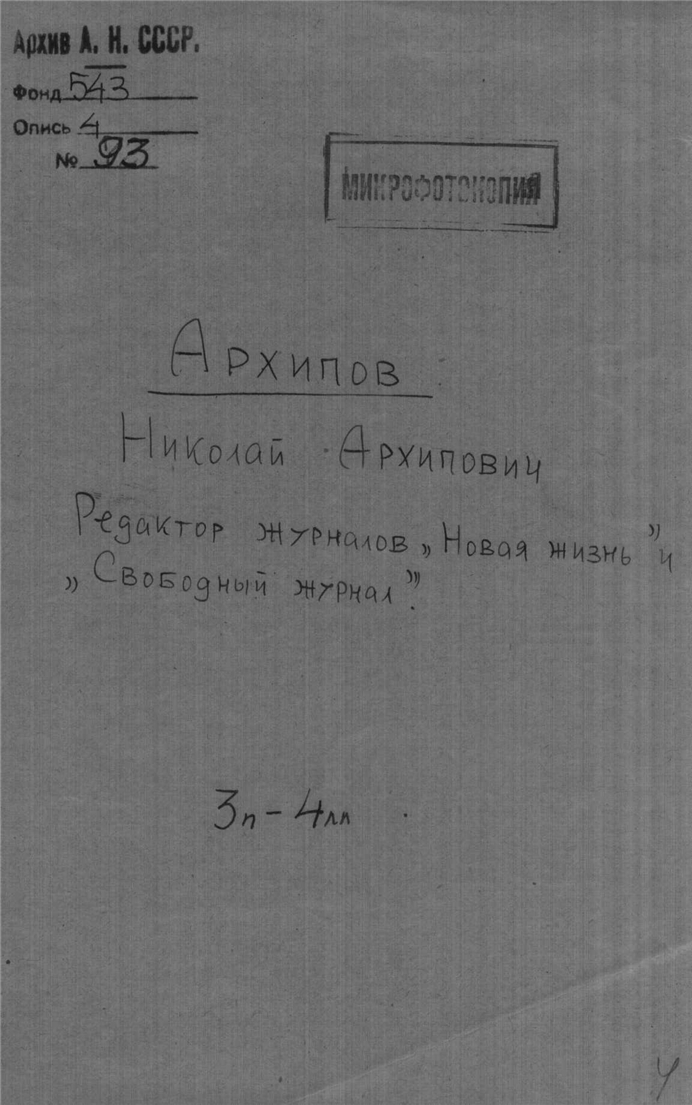 Архив А. Н. СССР.
Фонд 543
Опись 4
№ 93
МИКРОФОТОКОПИЯ
Архипов
Николай Архипович
Редактор журналов „Новая жизнь" и
„Свободный журнал".
3п - 4лл